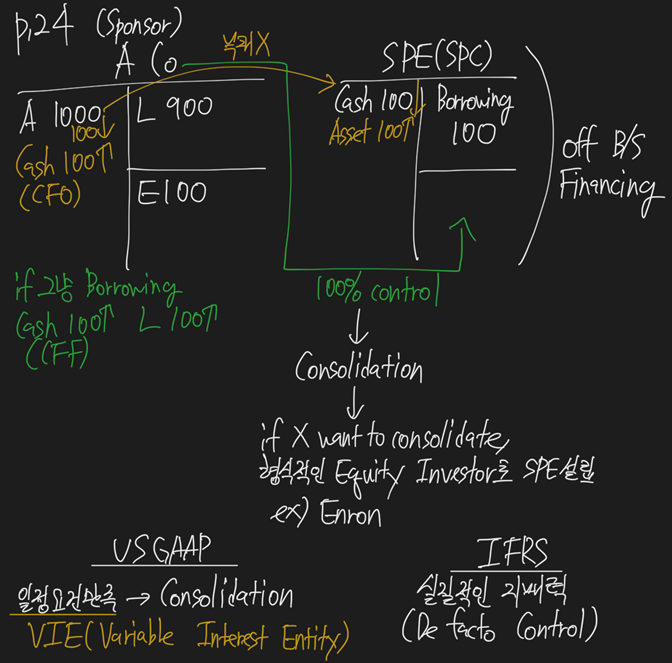 p.24 (Sponsor)
A Co
부외X
SPE(SPC)
A 1000
100↓
Cash 100↑
(CFO)
L 900
E100
Cash 100↓
Asset 100↑
Borrowing
100
off B/S
Financing
if 그냥 Borrowing
Cash 100↑ L 100↑
(CFF)
100% control
↓
Consolidation
↓
if X want to consolidate,
형식적인 Equity Investor로 SPE설립
ex) Enron
USGAAP
일정요건만족 → Consolidation
VIE(Variable Interest Entity)
IFRS
실질적인 지배력
(De facto Control)